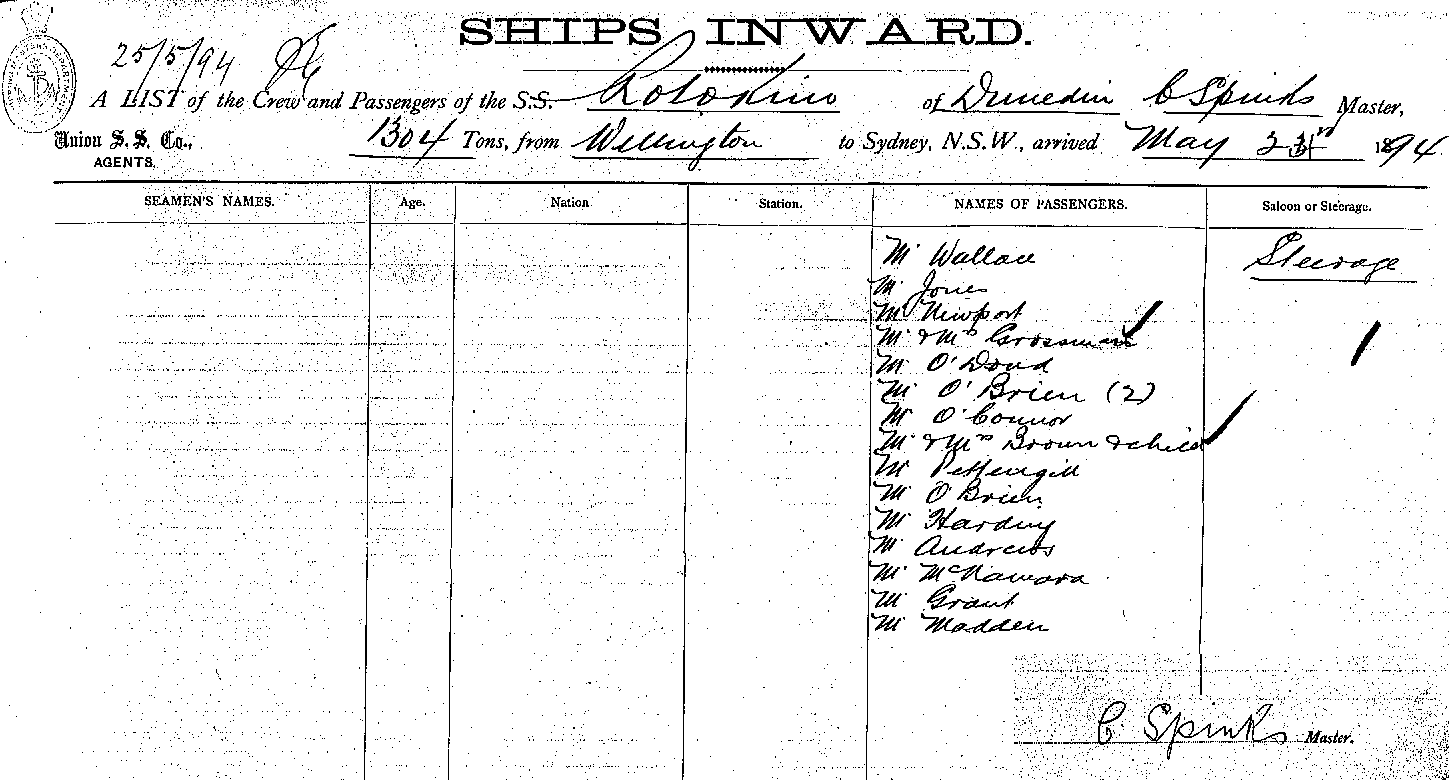 SHIPS INWARD.
25/5/94
A LIST of the Crew and Passengers of the S.S. Rotokino of Dunedin C Spinks Master,
Union S. S. Co., AGENTS. 1304 Tons, from Wellington to Sydney, N.S.W., arrived May 1894
SEAMEN'S NAMES. Age. Nation Station. NAMES OF PASSENGERS. Saloon or Steerage.
Mr Wallace Steerage
Mr Jones
Mr Newport
Mr & Mrs Grossmann
Mr O'Dowd
Mr O'Brien (2)
Mr O'Connor
Mr & Mrs Brown & child
Mr Pettengill
Mr O'Brien
Mr Harding
Mr Andrews
Mr McNamara
Mr Grant
Mr Madden
C Spinks Master.